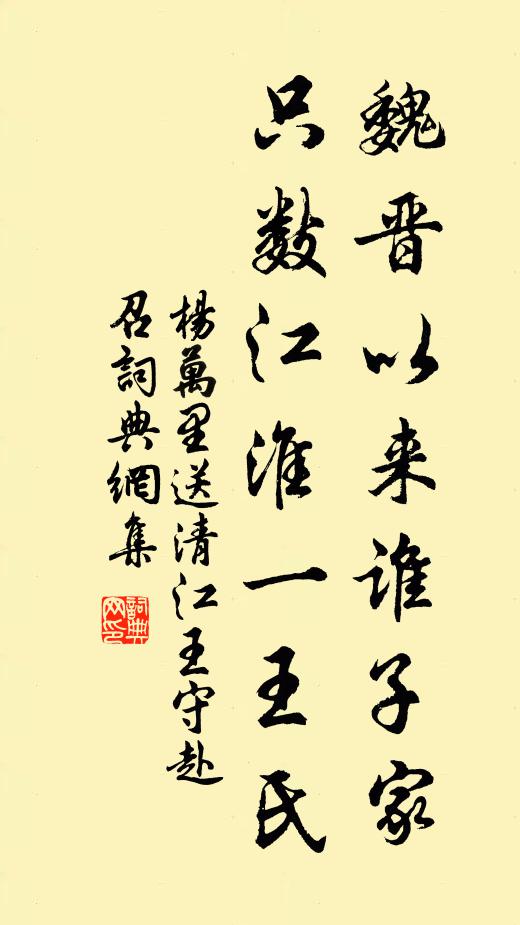 魏晋以来谁子家
只数江淮一王氏
楊萬里送清江王守赴
召詞典網集
詞典网印